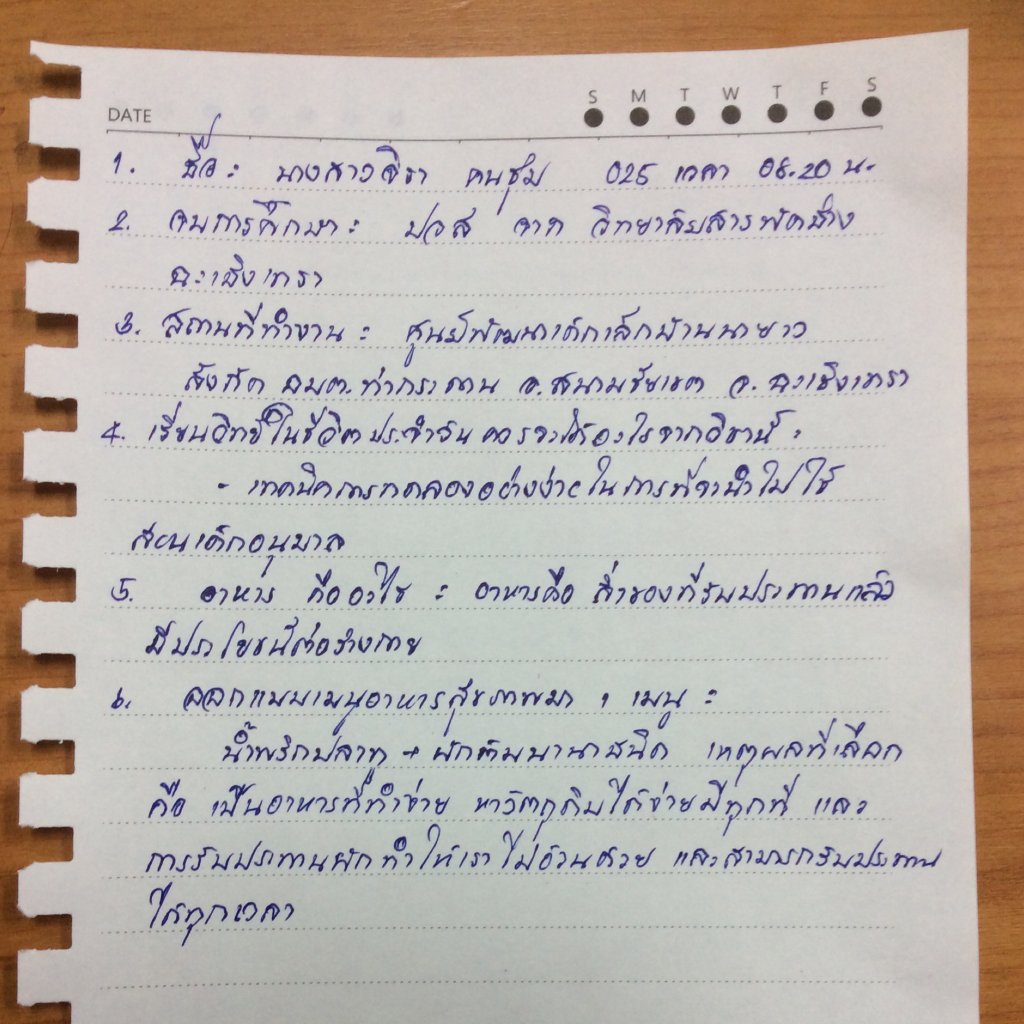 DATE S M T W T F S
1. ชื่อ : นางสาวจิรา คนชุม 025 เวลา 08.20 น.
2. จบการศึกษา : ปวส จาก วิทยาลัยสารพัดช่าง
ฉะเชิงเทรา
3. สถานที่ทำงาน : ศูนย์พัฒนาเด็กเล็กบ้านนายาว
สังกัด อบต.ท่ากระดาน อ.สนามชัยเขต จ.ฉะเชิงเทรา
4. เรียนวิทย์ในชีวิตประจำวันควรจะได้อะไรจากวิชานี้ :
- เทคนิคการทดลองอย่างง่ายในการที่จะนำไปใช้
สอนเด็กอนุบาล
5. อาหาร คืออะไร : อาหารคือ สิ่งของที่รับประทานแล้ว
มีประโยชน์ต่อร่างกาย
6. ออกแบบเมนูอาหารสุขภาพมา 1 เมนู :
น้ำพริกปลาทู + ผักต้มนานาชนิด เหตุผลที่เลือก
คือ เป็นอาหารที่ทำง่าย หาวัตถุดิบได้ง่ายมีทุกที่ และ
การรับประทานผักทำให้เราไม่อ้วนด้วย และสามารถรับประทาน
ได้ทุกเวลา